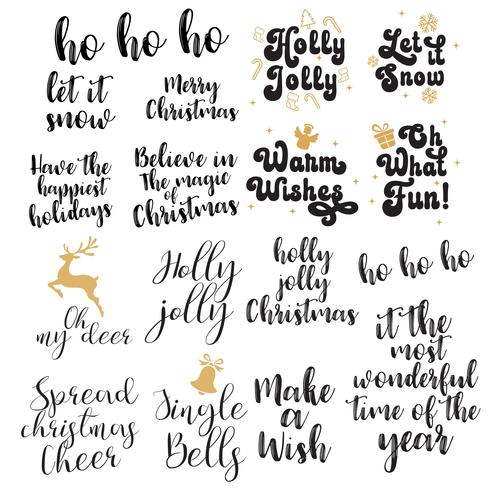 ho ho ho
let it
snow
Merry
Christmas
Holly
Jolly
Let
it
Snow
Have the
happiest
holidays
Believe in
The magic
of
Christmas
Warm
Wishes
Oh
What
Fun!
Oh
my deer
Holly
jolly
holly
jolly
Christmas
ho ho ho
it the
most
wonderful
time of the
year
Spread
christmas
Cheer
Jingle
Bells
Make
a
Wish